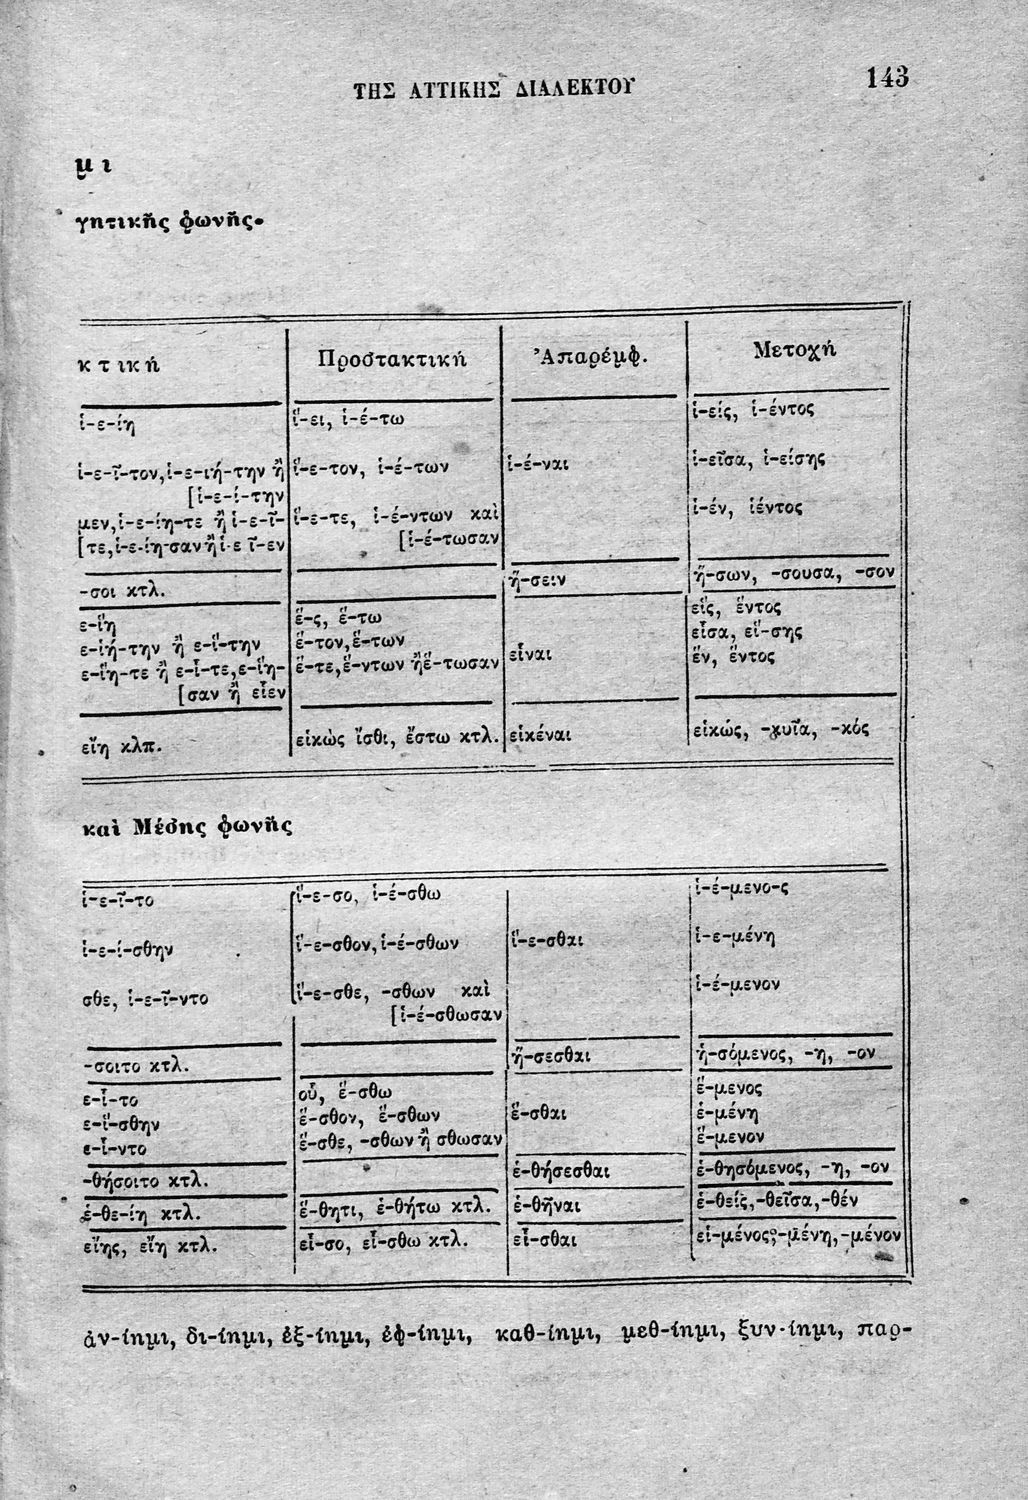 ΤΗΣ ΑΤΤΙΚΗΣ ΔΙΑΛΕΚΤΟΥ 143
μι
γητικῆς φωνῆς.
κτική Προστακτική Ἀπαρέμφ. Μετοχή
ἱ-ε-ίη ἵ-ει, ἱ-έ-τω ἱ-είς, ἱ-έντος
ἱ-ε-ῖ-τον, ἱ-ε-ιή-την ἢ ἵ-ε-τον, ἱ-έ-των ἱ-έ-ναι ἱ-εῖσα, ἱ-είσης
[ἱ-ε-ί-την
μεν, ἱ-ε-ίη-τε ἢ ἱ-ε-ῖ- ἵ-ε-τε, ἱ-έ-ντων καὶ ἱ-έν, ἱέντος
[τε, ἱ-ε-ίη-σαν ἢ ἱ-ε ῖ-εν [ἱ-έ-τωσαν
-σοι κτλ. ἥ-σειν ἥ-σων, -σουσα, -σον
ε-ἵη ἕ-ς, ἕ-τω εἵς, ἕντος
ε-ἱή-την ἢ ε-ἵ-την ἕ-τον, ἕ-των εἷναι εἷσα, εἵ-σης
ε-ἵη-τε ἢ ε-ἷ-τε, ε-ἵη- ἕ-τε, ἕ-ντων ἢ ἕ-τωσαν ἕν, ἕντος
[σαν ἢ εἷεν
εἴη κλπ. εἱκὼς ἴσθι, ἔστω κτλ. εἱκέναι εἱκώς, -κυῖα, -κός
καὶ Μέσης φωνῆς
ἱ-ε-ῖ-το ἵ-ε-σο, ἱ-έ-σθω ἱ-έ-μενο-ς
ἱ-ε-ί-σθην ἵ-ε-σθον, ἱ-έ-σθων ἵ-ε-σθαι ἱ-ε-μένη
σθε, ἱ-ε-ῖ-ντο ἵ-ε-σθε, -σθων καὶ ἱ-έ-μενον
[ἱ-έ-σθωσαν
-σοιτο κτλ. ἥ-σεσθαι ἡ-σόμενος, -η, -ον
ε-ἷ-το οὗ, ἕ-σθω ἕ-μενος
ε-ἵ-σθην ἕ-σθον, ἕ-σθων ἕ-σθαι ἑ-μένη
ε-ἷ-ντο ἕ-σθε, -σθων ἢ σθωσαν ἕ-μενον
-θήσοιτο κτλ. ἑ-θήσεσθαι ἑ-θησόμενος, -η, -ον
ἑ-θε-ίη κτλ. ἕ-θητι, ἑ-θήτω κτλ. ἑ-θῆναι ἑ-θείς, -θεῖσα, -θέν
εἴης, εἴη κτλ. εἷ-σο, εἷ-σθω κτλ. εἷ-σθαι εἱ-μένος, -μένη, -μένον
ἀν-ίημι, δι-ίημι, ἐξ-ίημι, ἐφ-ίημι, καθ-ίημι, μεθ-ίημι, ξυν-ίημι, παρ-